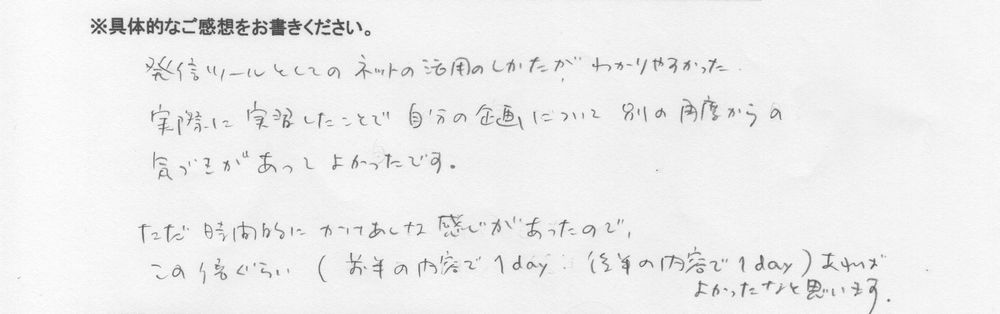 ※具体的なご感想をお書きください。
発信ツールとしてのネットの活用のしかたが、わかりやすかった.
実際に実習したことで自分の企画について別の角度からの
気づきがあってよかったです。
ただ時間的にかけあしな感じがあったので、
この倍ぐらい(前半の内容で1day 後半の内容で1day)あれば
よかったなと思います.